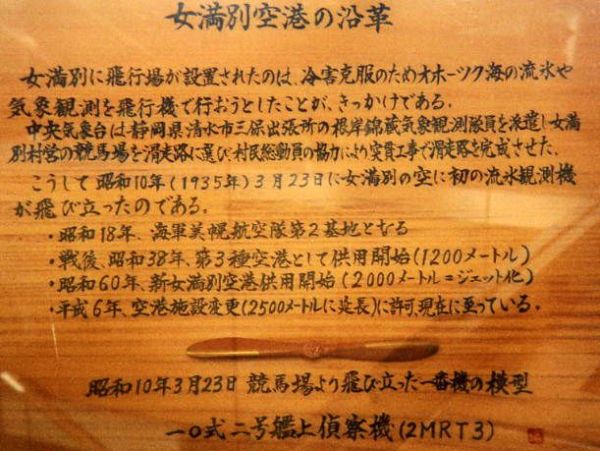 女満別空港の沿革
女満別に飛行場が設置されたのは、冷害克服のためオホーツク海の流氷や
気象観測を飛行機で行おうとしたことが、きっかけである。
中央気象台は静岡県清水市三保出張所の根岸錦蔵気象観測隊員を派遣し女満
別村営の競馬場を滑走路に選び村民総動員の協力により突貫工事で滑走路を完成させた。
こうして昭和10年(1935年)3月23日に女満別の空に初の流氷観測機
が飛び立ったのである。
・昭和18年、海軍美幌航空隊第2基地となる
・戦後、昭和38年、第3種空港として供用開始(1200メートル)
・昭和60年、新女満別空港供用開始(2000メートル=ジェット化)
・平成6年、空港施設変更(2500メートルに延長)に許可、現在に至っている.
昭和10年3月23日 競馬場より飛び立った一番機の模型
一〇式二号艦上偵察機(2MRT3)